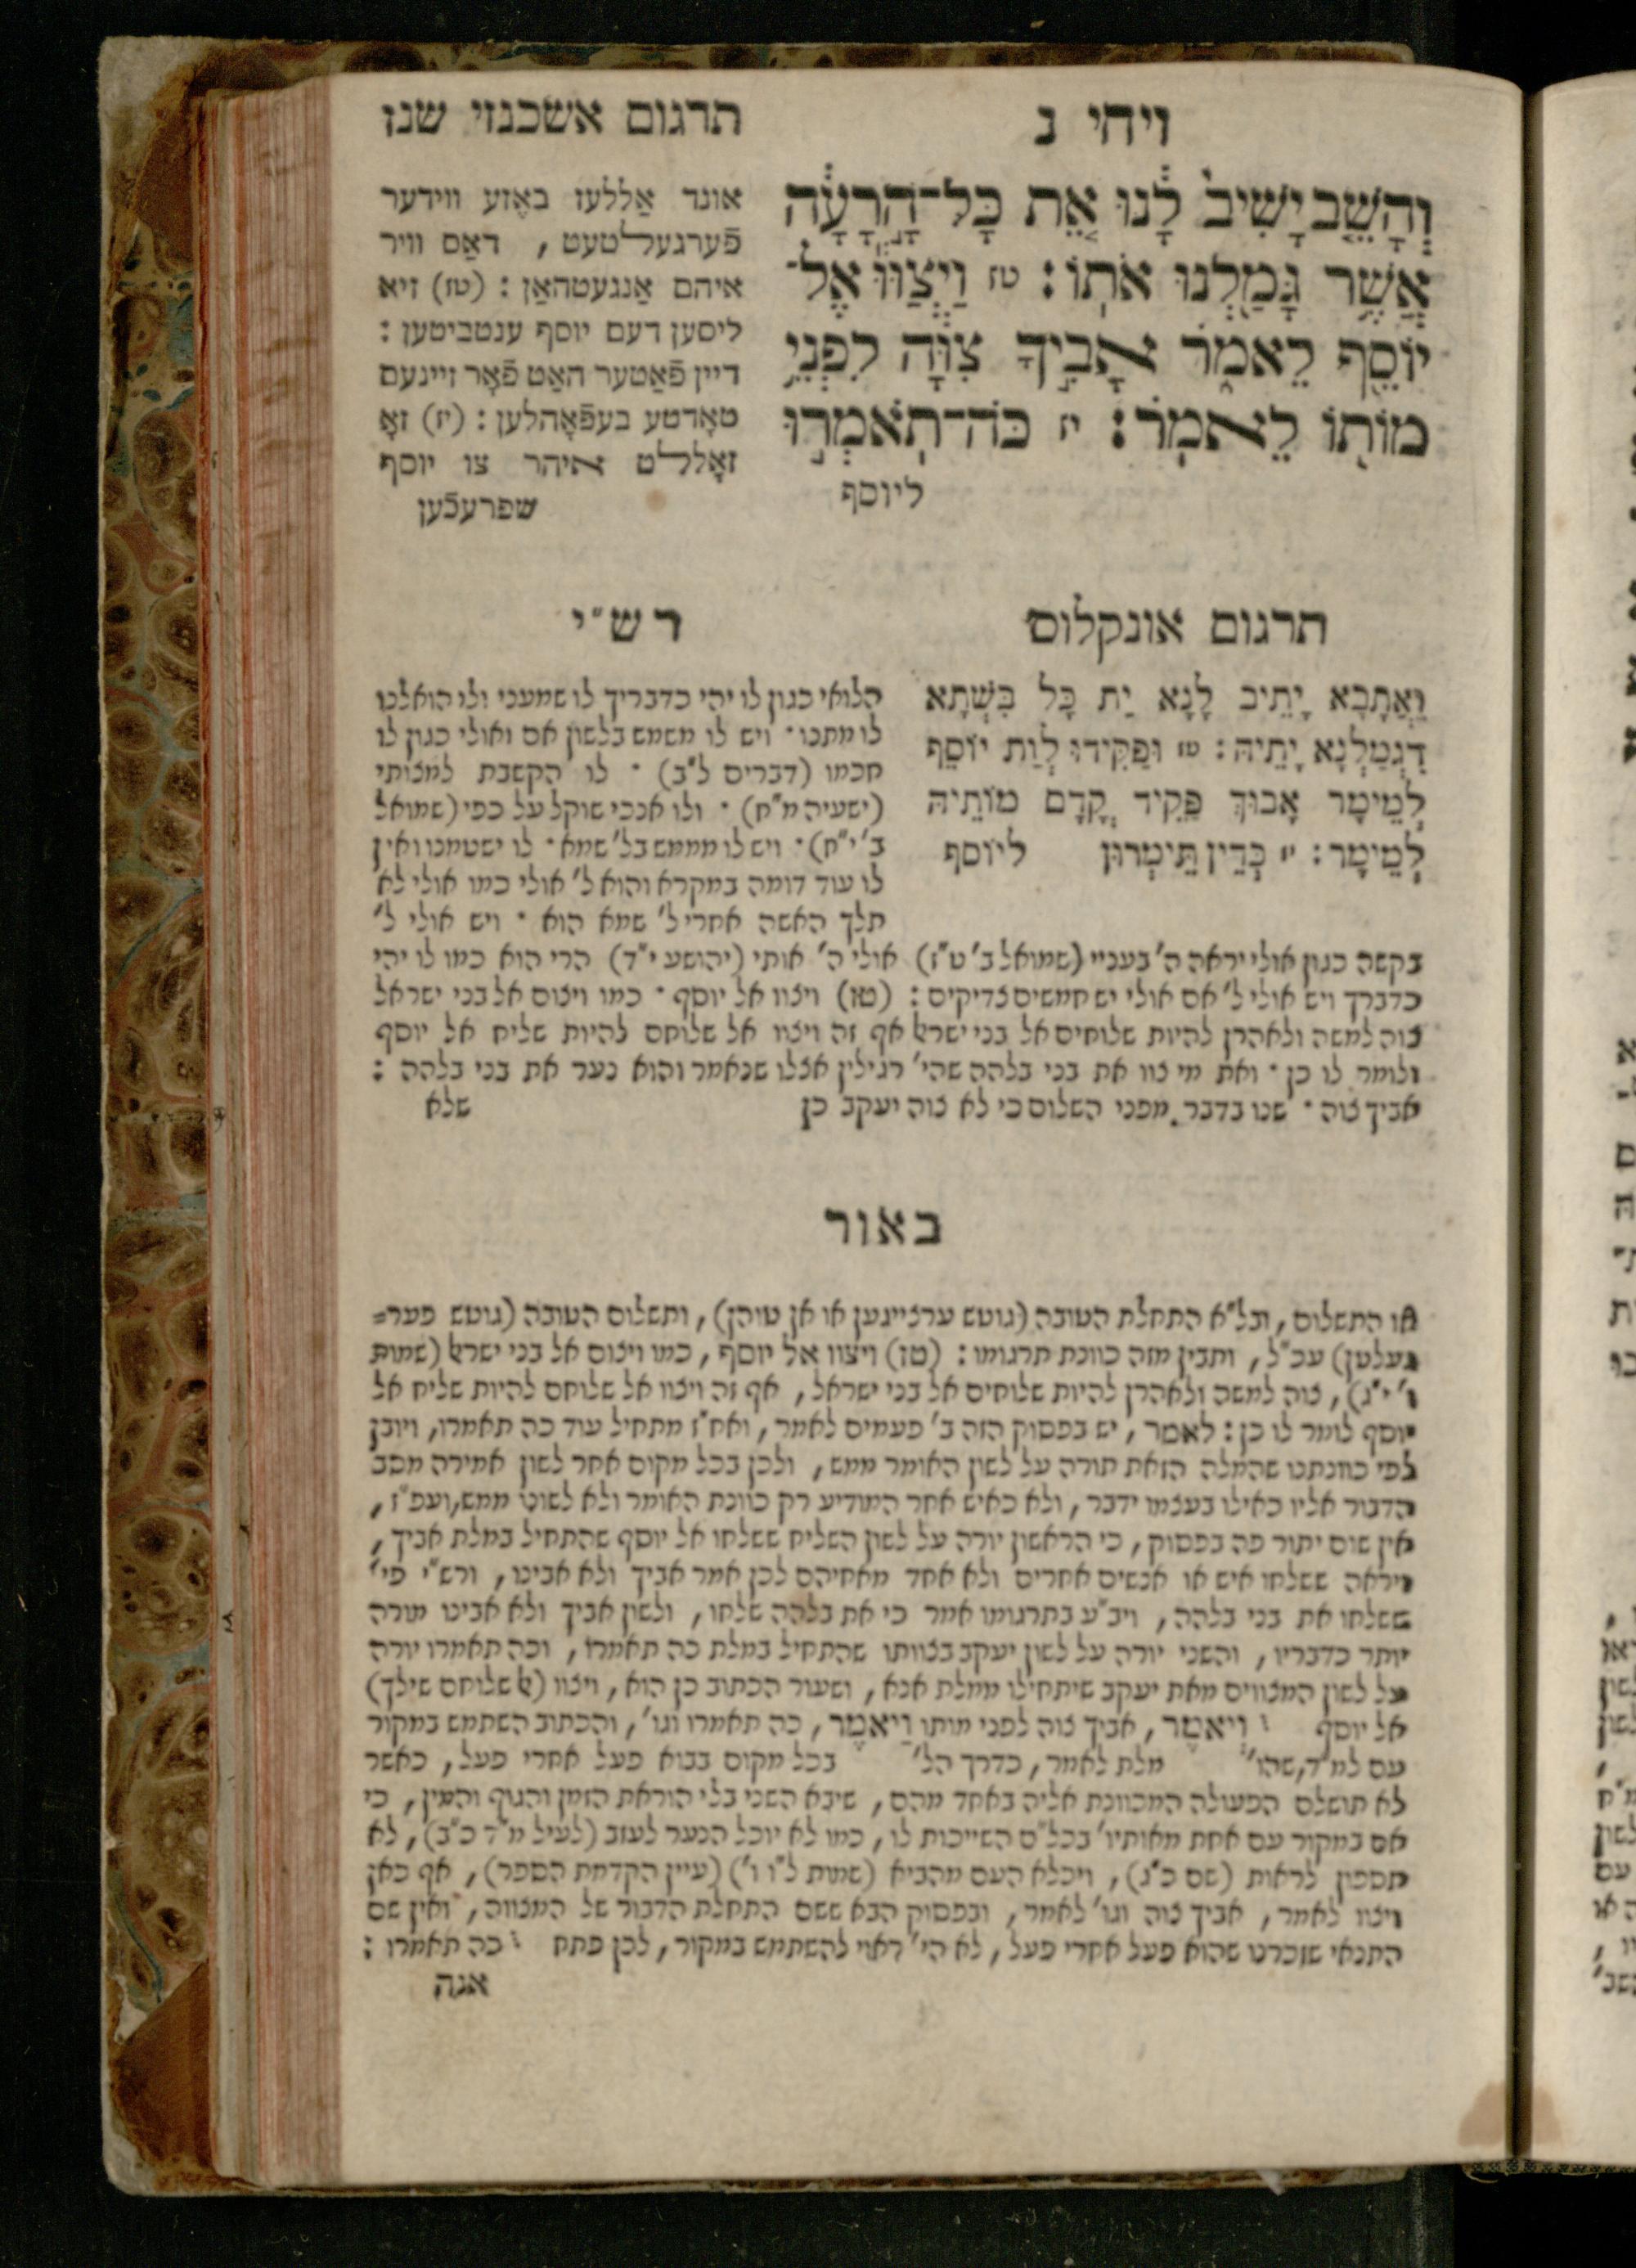 ויחי נ
תרגום אשכנזי שנז
וְהָשֵׁ֤ב יָשִׁיב֙ לָ֔נוּ אֵ֚ת כָּל־הָ֣רָעָ֔ה
אֲשֶׁ֥ר גָּמַ֖לְנוּ אֹתֽוֹ: טז וַיְצַוּ֕וּ אֶל־
יוֹסֵ֖ף לֵאמֹ֑ר אָבִ֣יךָ צִוָּ֔ה לִפְנֵ֥י
מוֹת֖וֹ לֵאמֹֽר: יז כֹּה־תֹאמְר֣וּ
ליוסף
אונד אַללעז באָזע ווידער
פֿערגעלטעט, דאַס וויר
איהם אַנגעטהאַן: (טז) זיא
ליסען דעם יוסף ענטביטען:
דיין פֿאַטער האַט פֿאָר זיינעם
טאָדטע בעפֿאָהלען: (יז) זאָ
זאָללט איהר צו יוסף
שפרעכֿען
תרגום אונקלוס
וַאֲתָבָא יָתֵיב לָנָא יַת כָּל בִּשְׁתָא
דִגְמַלְנָא יָתֵיהּ: טז וּפַקִּידוּ לְוַת יוֹסֵף
לְמֵימָר אָבוּךְ פַּקִיד קֳדָם מוֹתֵיהּ
לְמֵימָר: יז כְּדֵין תֵּימְרוּן ליוסף
רש"י
הלואי כגון לו יהי כדבריך לו שמעני ולו הואלנו
לו מתנו · ויש לו משמש בלשון אם ואולי כגון לו
חכמו (דברים ל"ב) · לו הקשבת למצותי
(ישעיה מ"ח) · ולו אנכי שוקל על כפי (שמואל
ב' י"ח) · ויש לו מממש בל' שמא · לו ישטמנו ואין
לו עוד דומה במקרא והוא ל' אולי כמו אולי לא
תלך האשה אחרי ל' שמא הוא · ויש אולי ל'
בקשה כגון אולי יראה ה' בעניי (שמואל ב' ט"ז) אולי ה' אותי (יהושע י"ד) הרי הוא כמו לו יהי
כדברך ויש אולי ל' אם אולי יש חמשים צדיקים: (טז) ויצוו אל יוסף · כמו ויצום אל בני ישראל
צוה למשה ולאהרן להיות שלוחים אל בני ישראל אף זה ויצוו אל שלוחם להיות שליח אל יוסף
ולומר לו כן · ואת מי צוו את בני בלהה שהי' רגילין אצלו שנאמר והוא נער את בני בלהה:
אביך צוה · שנו בדבר מפני השלום כי לא צוה יעקב כן שלא
באור
או התשלום, ובל"א התחלת הטובה (גוטש ערצייגען או אן טוהן), ותשלום הטובה (גוטש פער=
געלטן) עכ"ל, ותבין מזה כוונת תרגומו: (טז) ויצוו אל יוסף, כמו ויצום אל בני ישראל (שמות
ו' י"ג), צוה למשה ולאהרן להיות שלוחים אל בני ישראל, אף זה ויצוו אל שלוחם להיות שליח אל
יוסף לומר לו כן: לאמר, יש בפסוק הזה ב' פעמים לאמר, ואח"ז מתחיל עוד כה תאמרו, ויובן
לפי כוונתנו שהמלה הזאת תורה על לשון האומר ממש, ולכן בכל מקום אחר לשון אמירה מסב
הדבור אליו כאילו בעצמו ידבר, ולא כאיש אחר המודיע רק כוונת האומר ולא לשונו ממש, ועפ"ז,
אין שום יתור פה בפסוק, כי הראשון יורה על לשון השליח ששלחו אל יוסף שהתחיל במלת אביך,
ויראה ששלחו איש או אנשים אחרים ולא אחד מאחיהם לכן אמר אביך ולא אבינו, ורש"י פי'
ששלחו את בני בלהה, ויב"ע בתרגומו אמר כי את בלהה שלחו, ולשון אביך ולא אבינו מורה
יותר כדבריו, והשני יורה על לשון יעקב בצוותו שהתחיל במלת כה תאמרו, וכה תאמרו יורה
על לשון המצווים מאת יעקב שיתחילו ממלת אנא, ושעור הכתוב כן הוא, ויצוו (אל שלוחם שילך)
אל יוסף וְיֹאמַר, אביך צוה לפני מותו וַיֹאמֶר, כה תאמרו וגו', והכתוב השתמש במקור
עם למ"ד, שהו' מלת לאמר, כדרך הל' בכל מקום בבוא פעל אחרי פעל, כאשר
לא תושלם הפעולה המכוונת אליה באחד מהם, שיבא השני בלי הוראת הזמן והגוף והמין, כי
אם במקור עם אחת מאותיו' בכל"ם השייכות לו, כמו לא יוכל הנער לעזב (לעיל מ"ד כ"ב), לא
תספון לראות (שם כ"ג), ויכלא העם מהביא (שמות ל"ו ו') (עיין הקדמת הספר), אף כאן
ויצוו לאמר, אביך צוה וגו' לאמר, ובפסוק הבא ששם התחלת הדבור של המצווה, ואין שם
התנאי שזכרנו שהוא פעל אחרי פעל, לא הי' ראוי להשתמש במקור, לכן פתח כה תאמרו:
אנה